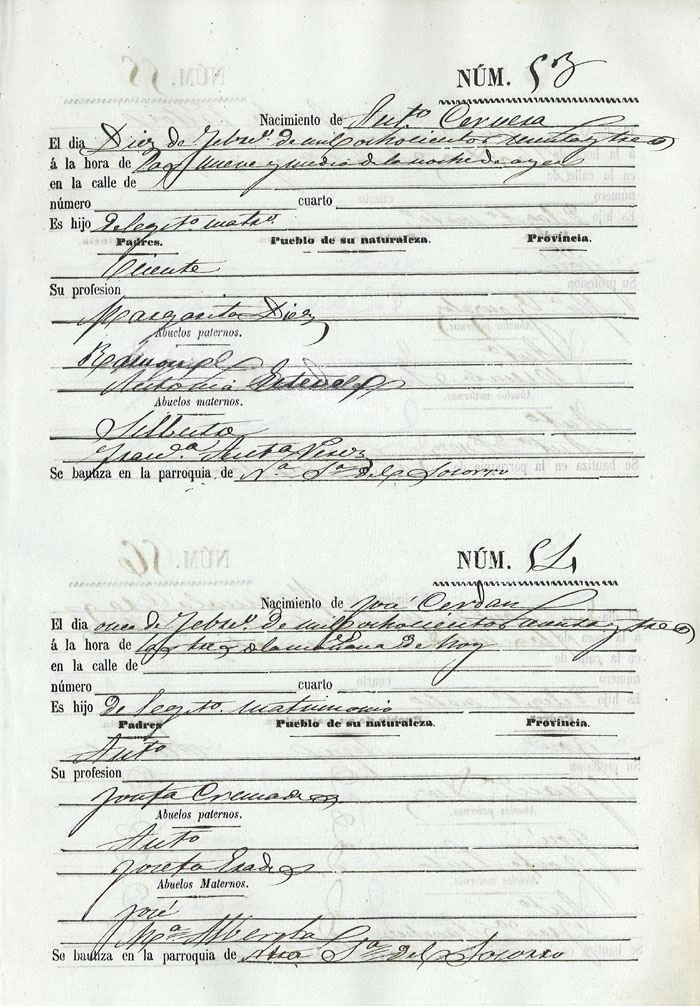 NÚM. 53
Nacimiento de Ant.o Cervera
El dia Diez de Febr.o de mil ochocientos y tres
á la hora de las nueve y media de la noche de ayer
en la calle de
número cuarto
Es hijo de legit.o matr.o
Padres. Pueblo de su naturaleza. Provincia.
Vicente
Su profesion
Margarita Diez
Abuelos paternos.
Ramon
Antonia
Abuelos maternos.
Franc.a Ant.a Perez
Se bautiza en la parroquia de N.a S.a del Socorro
NÚM. 54
Nacimiento de José Cerdan
El dia once de Febr.o de mil ochocientos y tres
á la hora de las tres de la mañana de hoy
en la calle de
número cuarto
Es hijo de legit.o matrimonio
Padres Pueblo de su naturaleza. Provincia.
Ant.o
Su profesion
Josefa Cremades
Abuelos paternos.
Ant.o
Josefa
Abuelos Maternos.
José
M.a Alberola
Se bautiza en la parroquia de Ntra S.a del Socorro